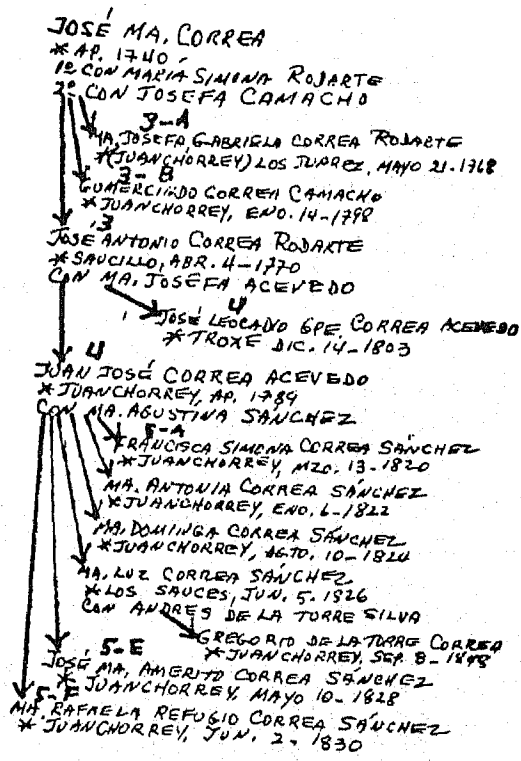 JOSÉ MA. CORREA
* AP. 1740
1º CON MARIA SIMONA RODARTE
2º CON JOSEFA CAMACHO
3-A
MA. JOSEFA GABRIELA CORREA RODARTE
*(JUANCHORREY) LOS JUAREZ, MAYO 21-1768
3-B
GUMERCINDO CORREA CAMACHO
* JUANCHORREY, ENO. 14-1798
3
JOSÉ ANTONIO CORREA RODARTE
* SAUCILLO, ABR. 4-1770
CON MA. JOSEFA ACEVEDO
4
JOSÉ LEOCADIO GPE. CORREA ACEVEDO
* TROXE DIC. 14-1803
4
JUAN JOSÉ CORREA ACEVEDO
* JUANCHORREY, AP. 1789
CON MA. AGUSTINA SANCHEZ
5-A
FRANCISCA SIMONA CORREA SÁNCHEZ
* JUANCHORREY, MZO. 13-1820
MA. ANTONIA CORREA SÁNCHEZ
* JUANCHORREY, ENO. 6-1822
MA. DOMINGA CORREA SÁNCHEZ
* JUANCHORREY, AGTO. 10-1824
MA. LUZ CORREA SÁNCHEZ
* LOS SAUCES, JUN. 5-1826
CON ANDRÉS DE LA TORRE SILVA
GREGORIO DE LA TORRE CORREA
* JUANCHORREY, SEP. 8-1848
5-E
JOSÉ MA. AMERITO CORREA SÁNCHEZ
* JUANCHORREY, MAYO 10-1828
5-F
MA. RAFAELA REFUGIO CORREA SÁNCHEZ
* JUANCHORREY, JUN. 2-1830